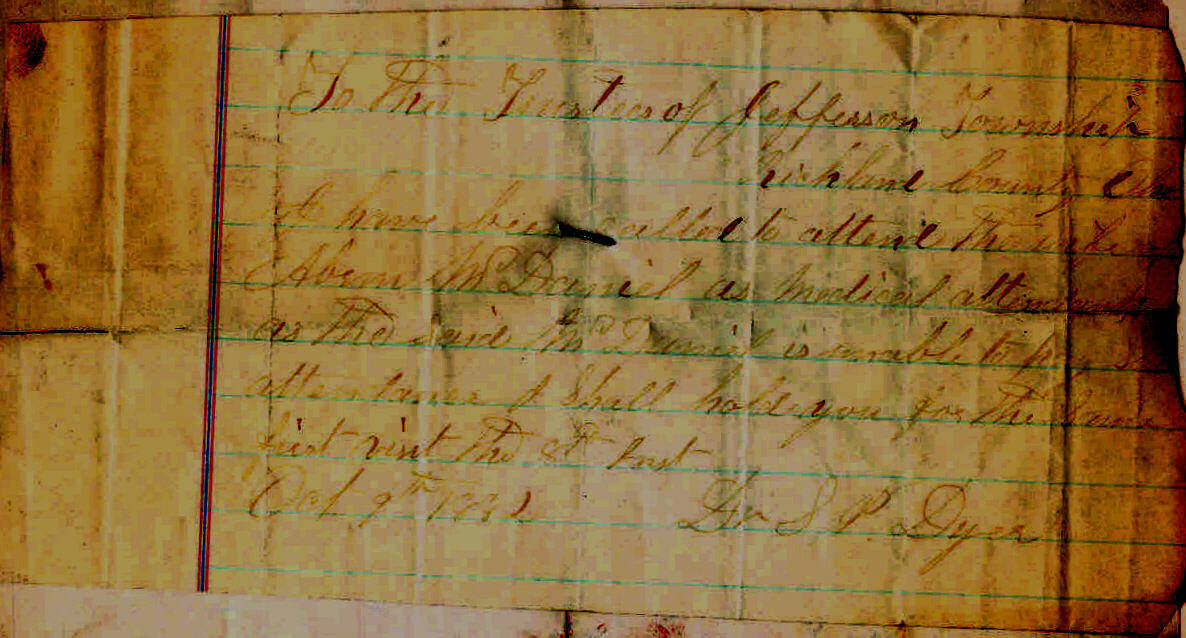 To The Trustees of Jefferson Township
Richland County Ohio
I have been called to attend the wife
Abram McDaniel as Medical attendant
as the said McDaniel is unable to pay
attendance I Shall hold you for the Same
first visit the 8th Inst
Oct 9th 1882 Dr S P Dyer